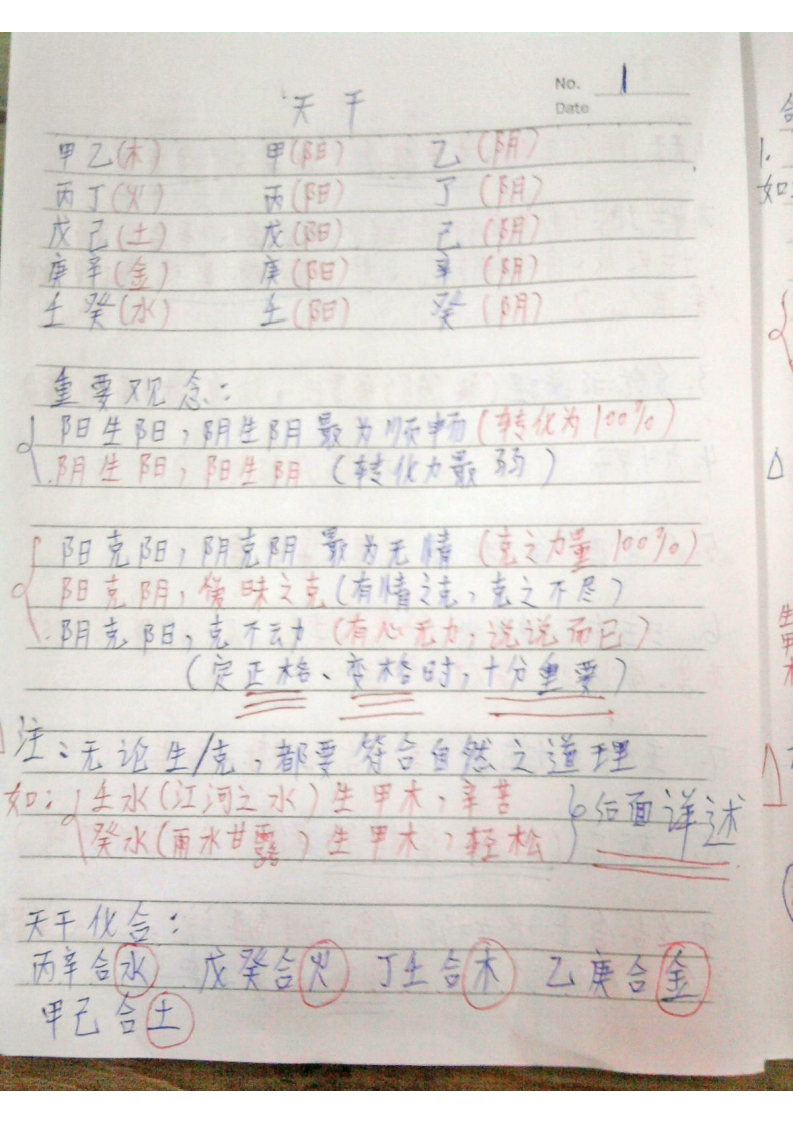 No. 1
天干
Date
甲乙(木) 甲(阳) 乙(阴)
丙丁(火) 丙(阳) 丁(阴)
戊己(土) 戊(阳) 己(阴)
庚辛(金) 庚(阳) 辛(阴)
壬癸(水) 壬(阳) 癸(阴)
重要观念:
阳生阳,阴生阴最为顺畅(转化为100%)
阴生阳,阳生阴(转化力最弱)
阳克阳,阴克阴最为无情(克之力量100%)
阳克阴,暧昧之克(有情之克,克之不尽)
阴克阳,克不动(有心无力,说说而已)
(定正格、变格时,十分重要)
注:无论生/克,都要符合自然之道理
如:壬水(江河之水)生甲木,辛苦
癸水(雨水甘露)生甲木,轻松
后面详述
天干化合:
丙辛合水 戊癸合火 丁壬合木 乙庚合金
甲己合土
1.
如